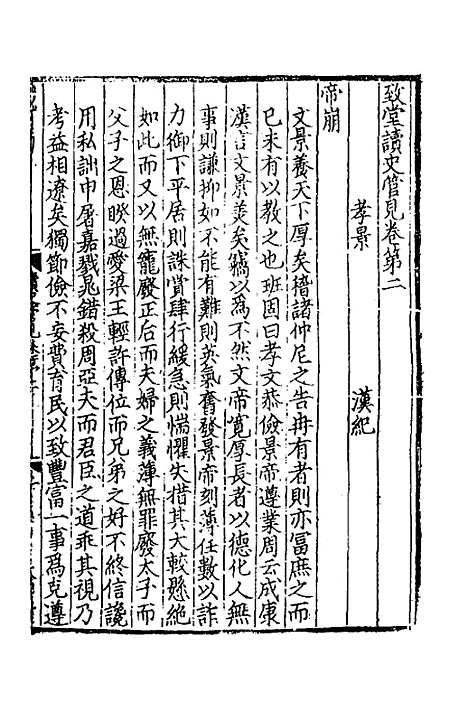 致堂讀史管見卷第二
孝景　漢紀
帝崩
文景養天下厚矣揩諸仲尼之告冉有者則亦冨庶之而
已未有以教之也班固曰孝文恭儉景帝遵業周云成康
漢言文景羙矣竊以為不然文帝寛厚長者以德化人無
事則謙抑如不能有難則英氣奮發景帝刻薄任數以詐
力御下平居則誅賞肆行緩急則惴懼失措其大較懸絶
如此而又以無寵廢正后而夫婦之義薄無罪廢太子而
父子之恩睽過愛梁王輕許傳位而兄弟之好不終信讒
用私詘申屠嘉戮晁錯殺周亞夫而君臣之道乖其視乃
考益相遼矣獨節儉不妄費育民以致豐富一事爲克遵